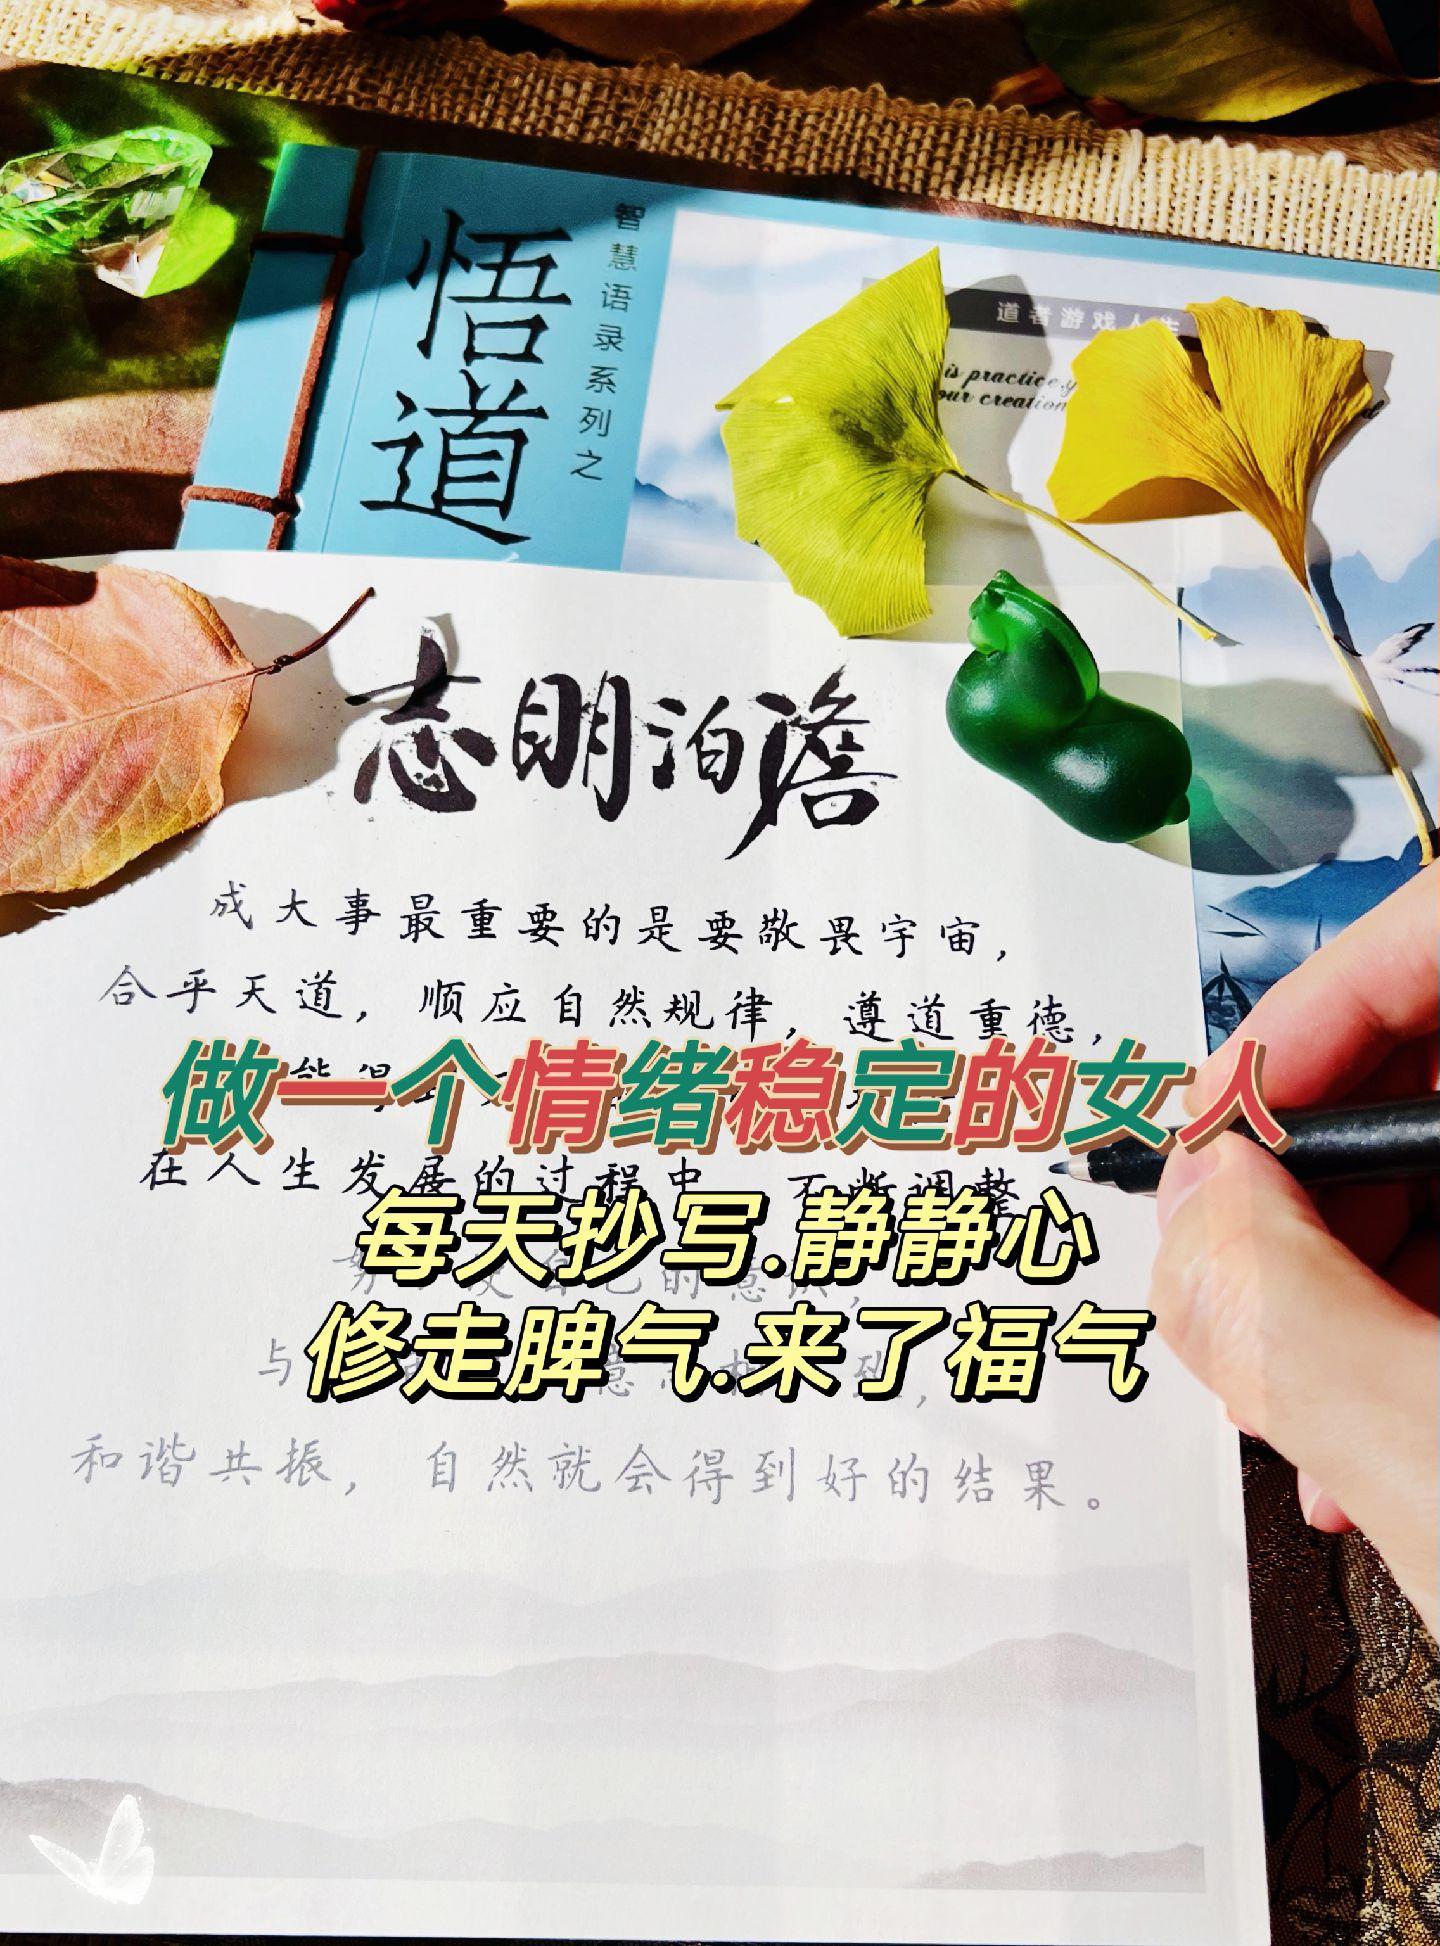 智慧语录系列之
悟道
道者游戏人生
is practice
our creation
志明泊澹
成大事最重要的是要敬畏宇宙，
合乎天道，顺应自然规律，遵道重德，
做一个情绪稳定的女人
在人生发展的过程中，不断调整
每天抄写.静静心
修走脾气.来了福气
和谐共振，自然就会得到好的结果。